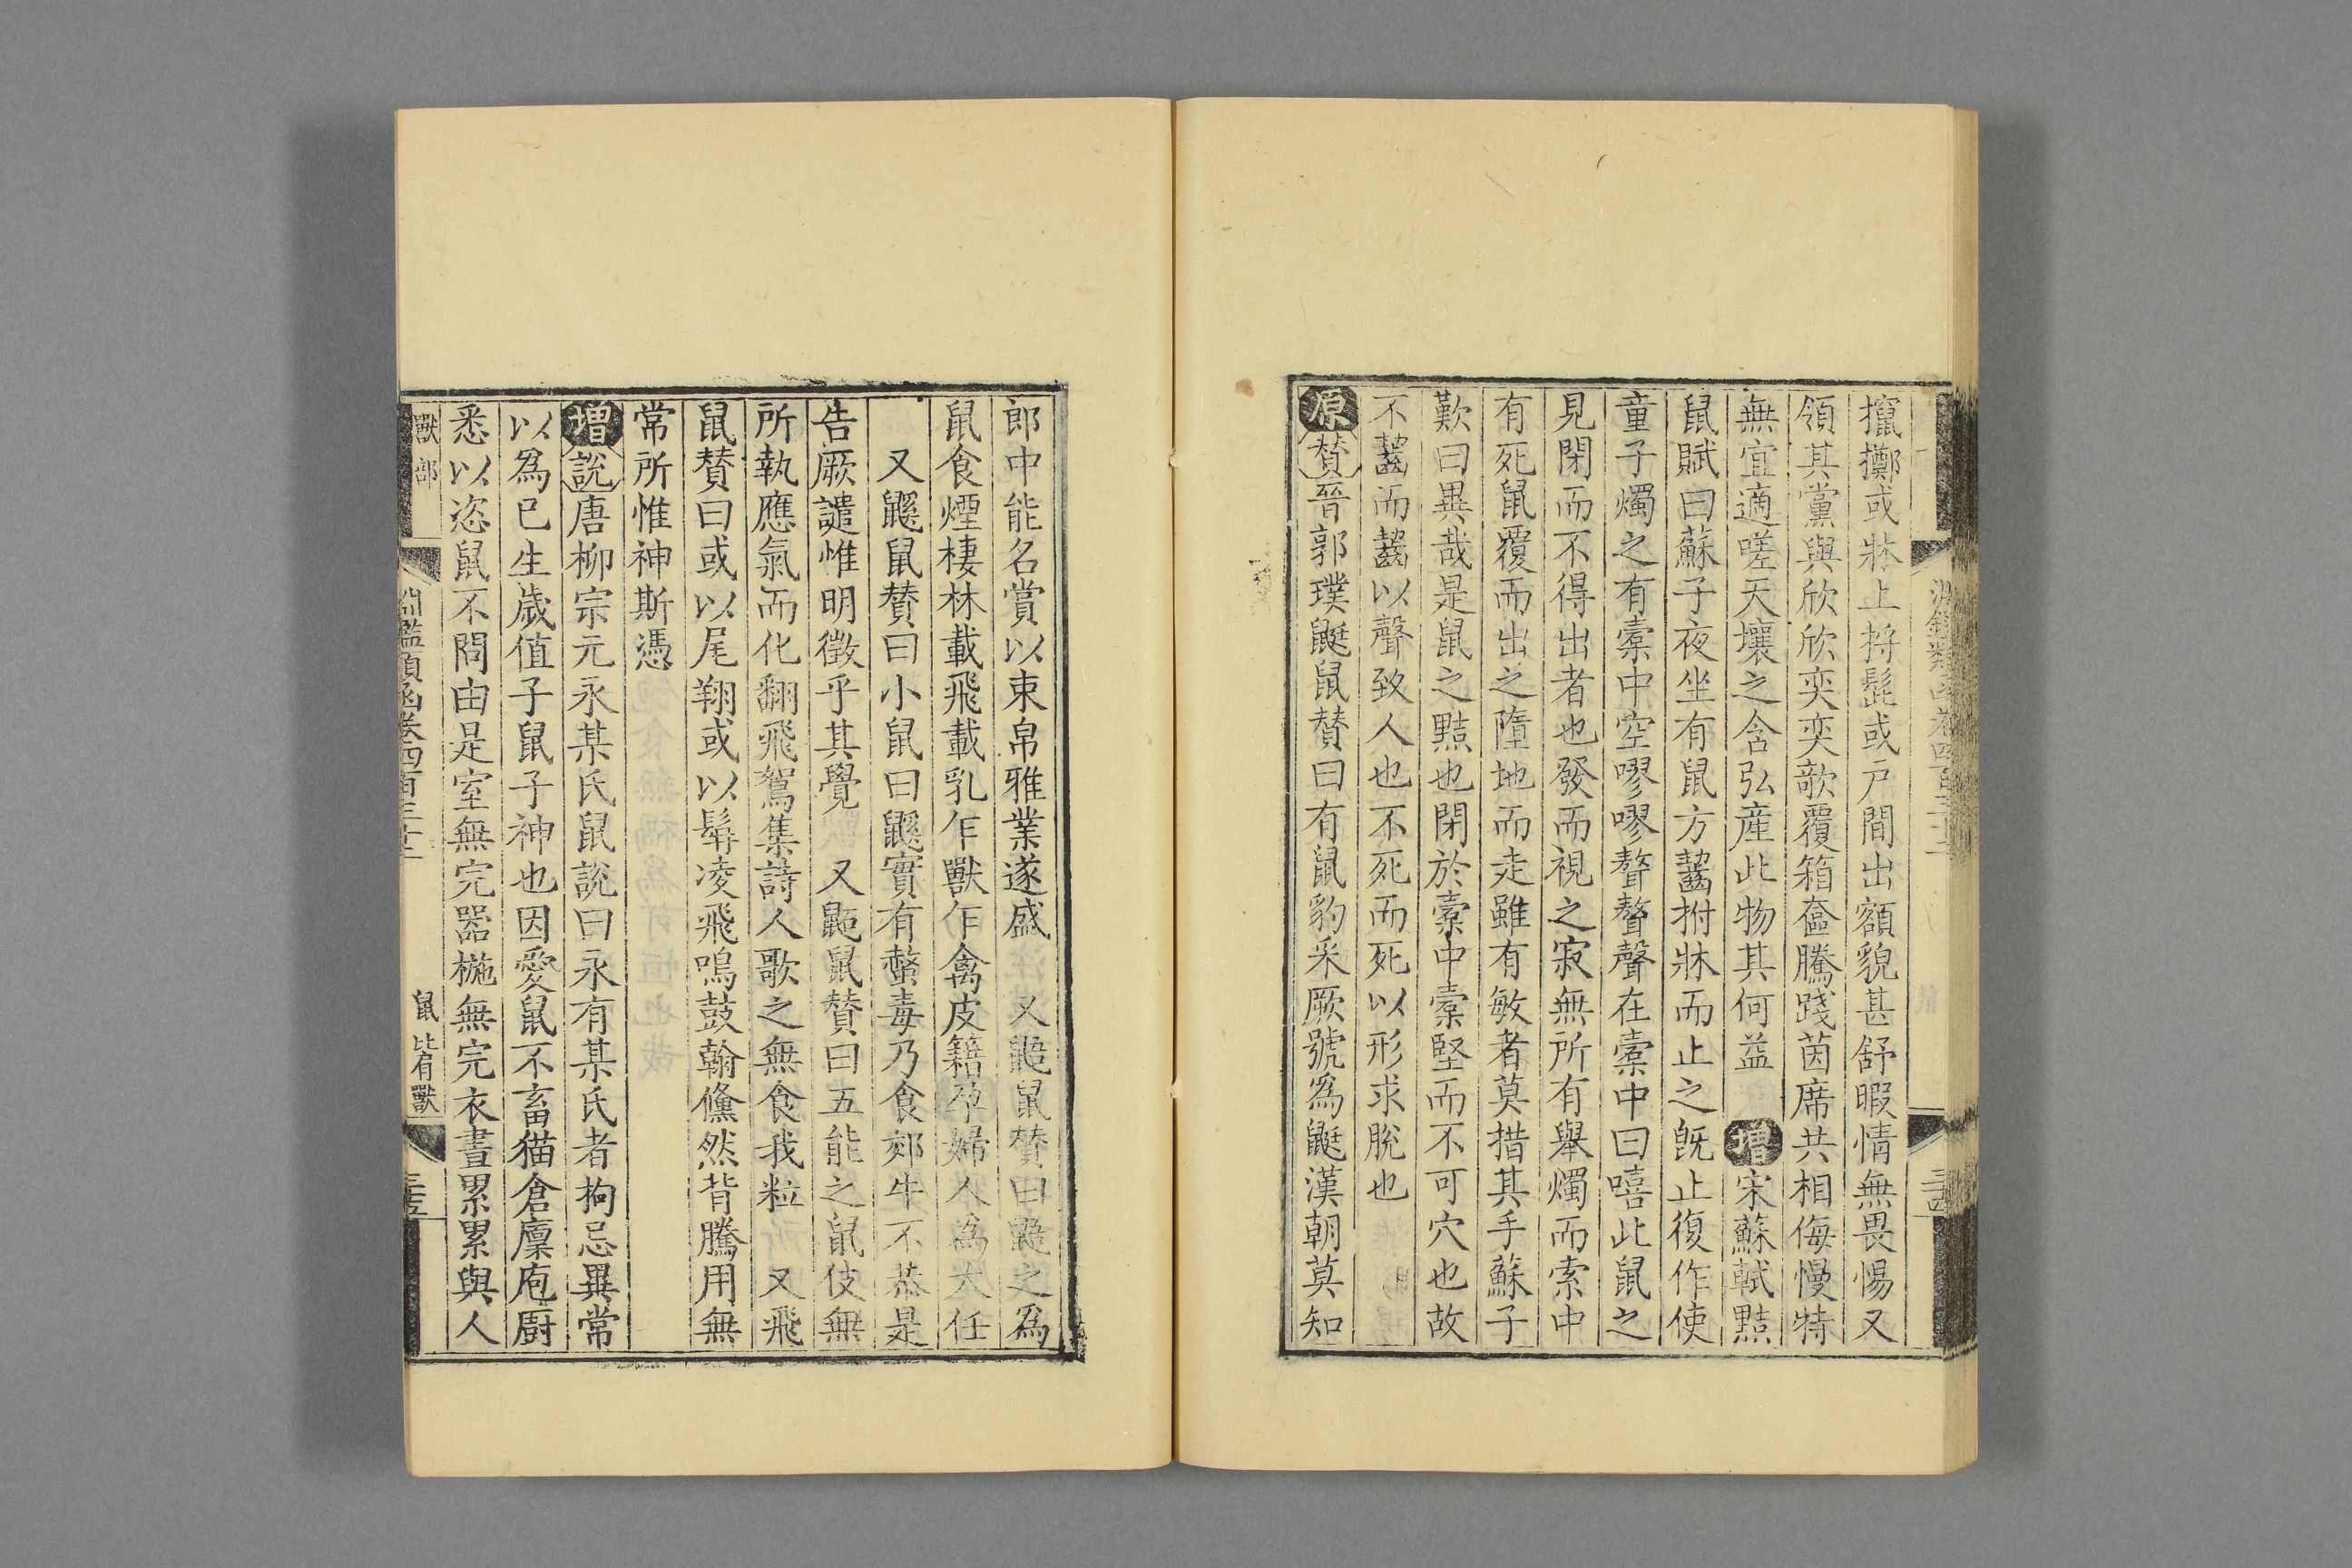 擸擲或牀上捋髭或戶間出額貌甚舒暇情無畏惕又
領其黨與欣欣奕奕欹覆箱奩騰踐茵席共相侮慢特
無宜適嗟天壤之含弘產此物其何益 增宋蘇軾黠
鼠賦曰蘇子夜坐有鼠方齧拊牀而止之旣止復作使
童子燭之有橐中空嘐嘐聱聱聲在橐中曰嘻此鼠之
見閉而不得出者也發而視之寂無所有舉燭而索中
有死鼠覆而出之墮地而走雖有敏者莫措其手蘇子
歎曰異哉是鼠之黠也閉於橐中橐堅而不可穴也故
不齧而齧以聲致人也不死而死以形求脫也
原贊晉郭璞鼮鼠贊曰有鼠豹采厥號爲鼮漢朝莫知
郎中能名賞以束帛雅業遂盛 又鼯鼠贊曰鼯之爲
鼠食煙棲林載飛載乳乍獸乍禽皮籍孕婦人爲大任
又鼷鼠贊曰小鼠曰鼷實有螫毒乃食郊牛不恭是
告厥譴惟明徵乎其覺 又鼫鼠贊曰五能之鼠伎無
所執應氣而化翻飛鴽集詩人歌之無食我粒 又飛
鼠贊曰或以尾翔或以髯凌飛鳴鼓翰儵然背騰用無
常所惟神斯憑
增說唐柳宗元永某氏鼠說曰永有某氏者拘忌異常
以爲已生歲值子鼠子神也因愛鼠不畜猫倉廩庖廚
悉以恣鼠不問由是室無完器椸無完衣晝累累與人
獸部 淵鑑類函卷四百三十二 鼠 比肩獸 三十五